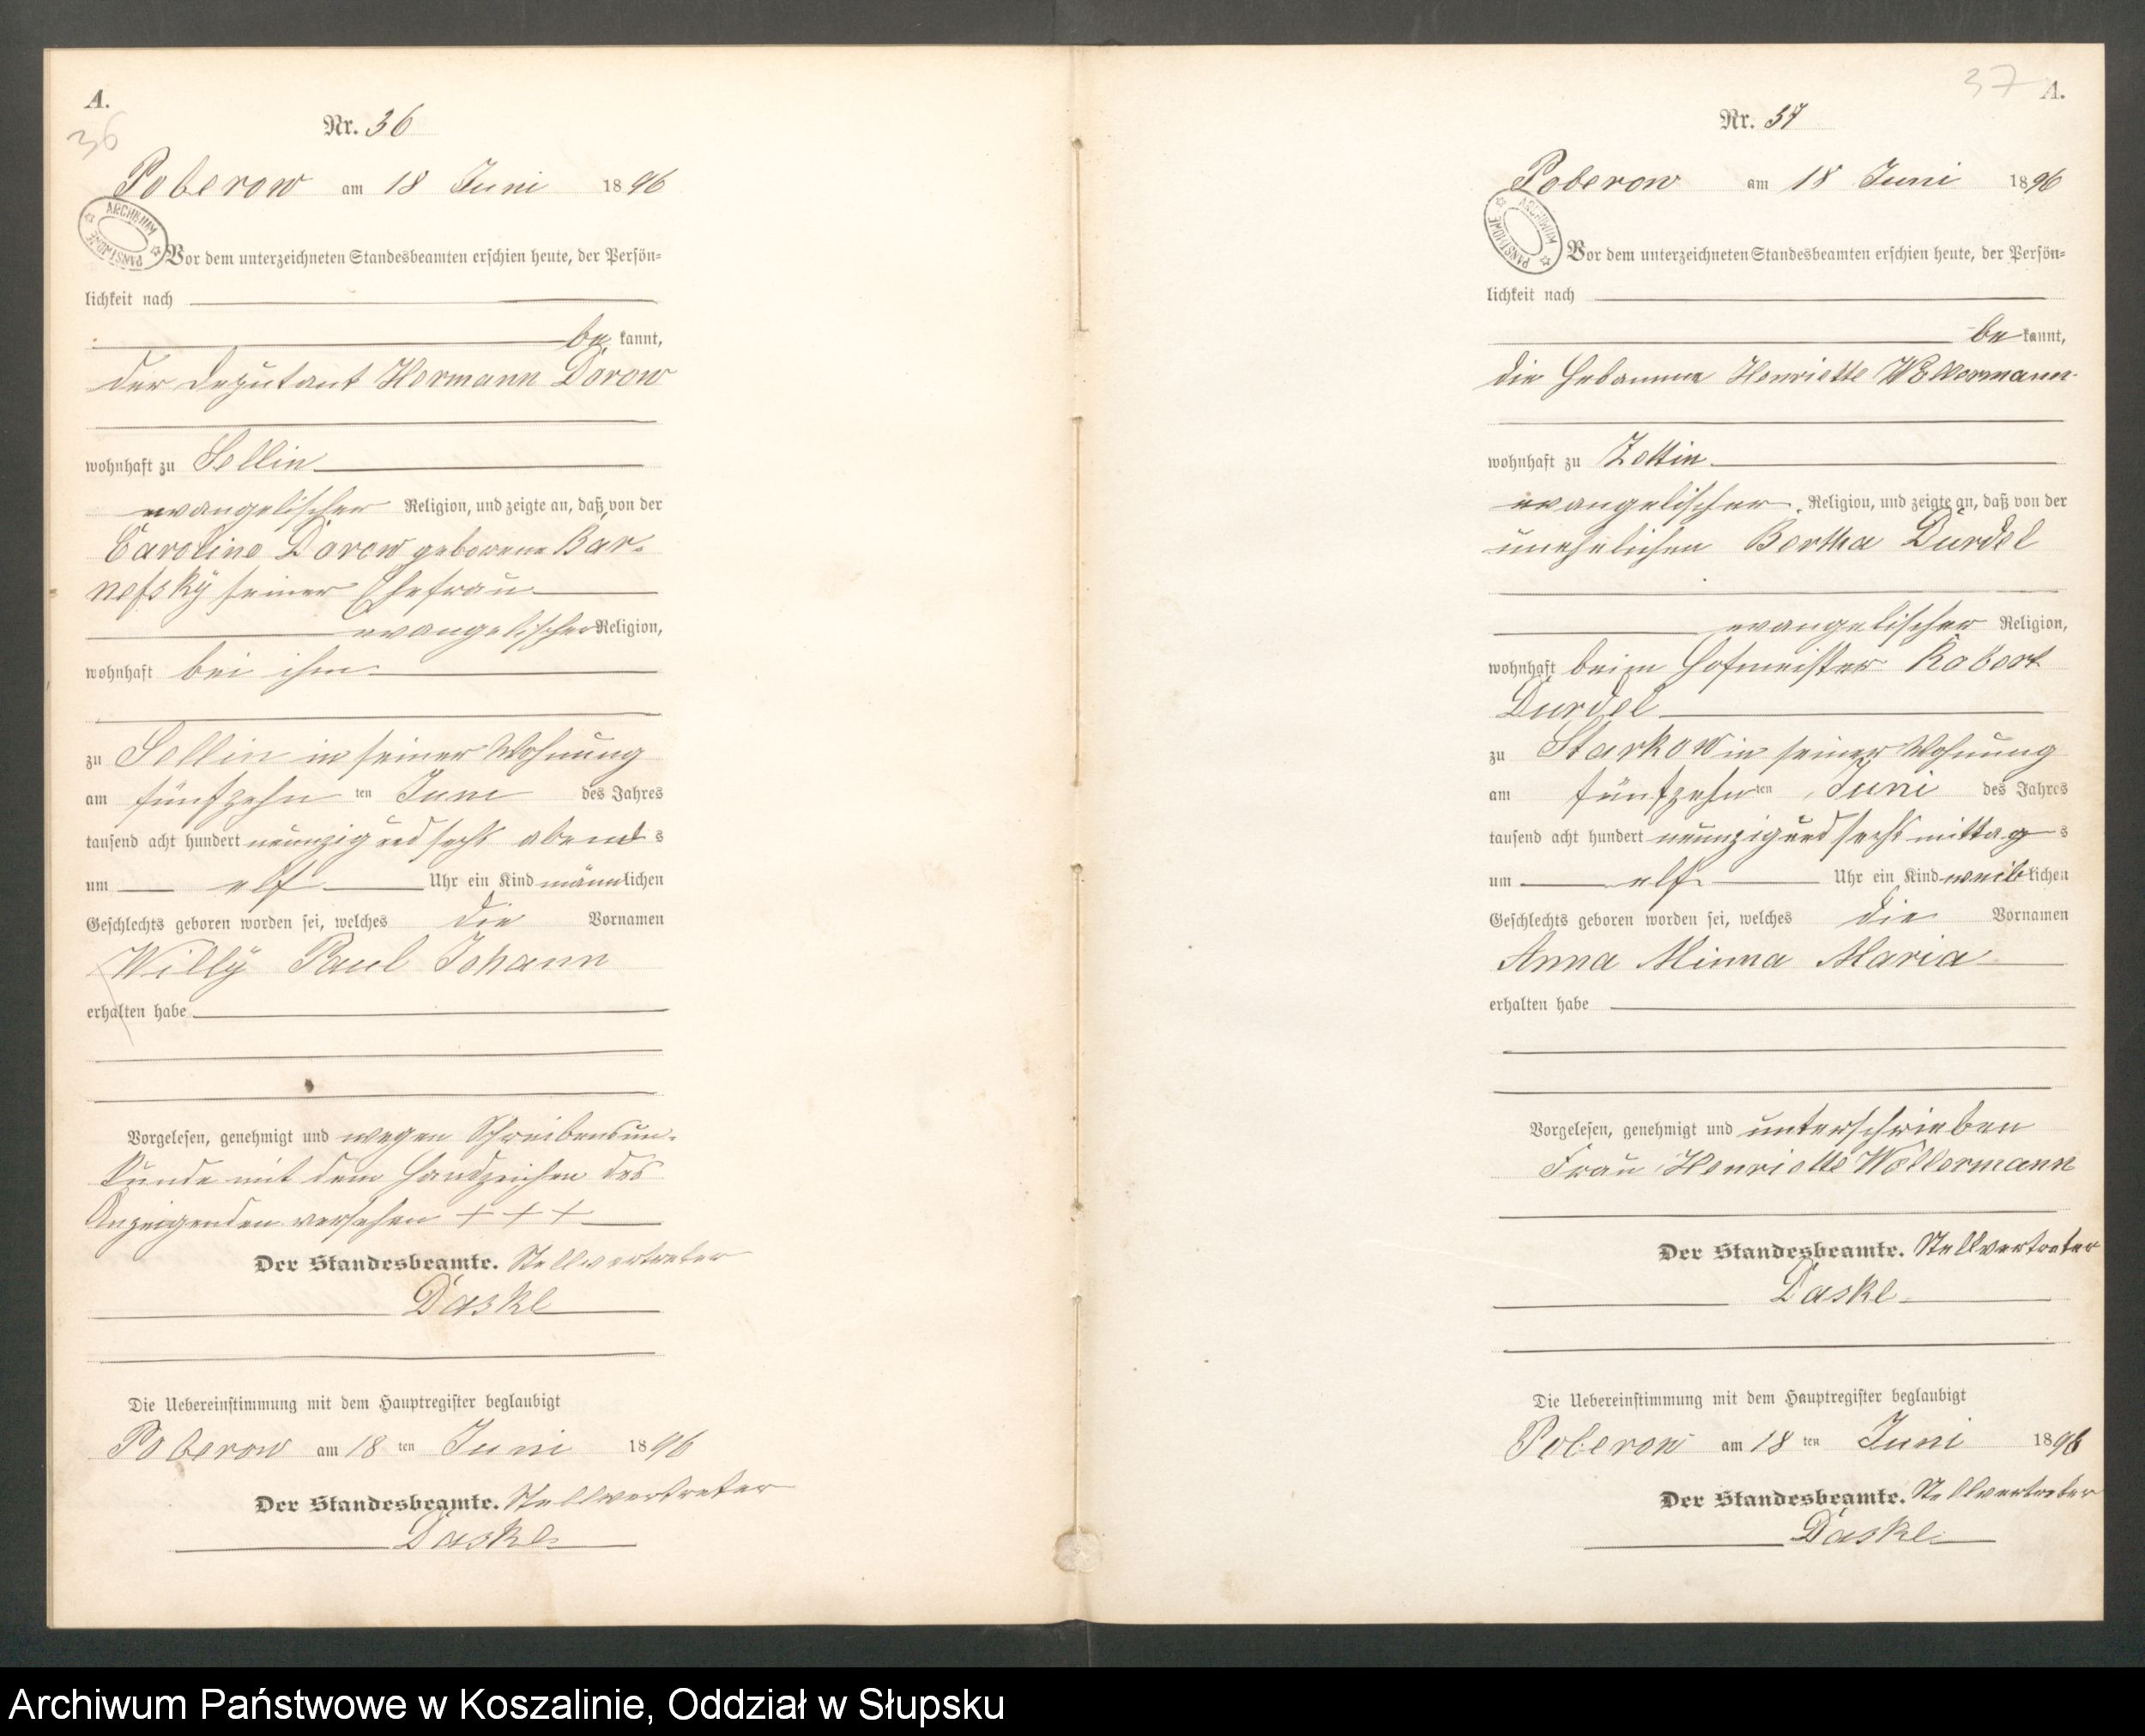 A.
36
Nr. 36
Poberow am 18 Juni 1896
ARCHIWUM PAŃSTWOWE
Vor dem unterzeichneten Standesbeamten erschien heute, der Persön=
lichkeit nach
be kannt,
der Deputant Hermann Dorow
wohnhaft zu Sellin
evangelischer Religion, und zeigte an, daß von der
Caroline Dorow geborene Bar-
nefsky seiner Ehefrau
evangelischer Religion,
wohnhaft bei ihm
zu Sellin in seiner Wohnung
am fünfzehn ten Juni des Jahres
tausend acht hundert neunzig und sechs abend s
um elf Uhr ein Kind männlichen
Geschlechts geboren worden sei, welches die Vornamen
Willy Paul Johann
erhalten habe
Vorgelesen, genehmigt und wegen Schreibensun-
kunde mit dem Handzeichen des
Anzeigenden versehen + + +
Der Standesbeamte. Stellvertreter
Daske
Die Uebereinstimmung mit dem Hauptregister beglaubigt
Poberow am 18 ten Juni 1896
Der Standesbeamte. Stellvertreter
Daske
37 A.
Nr. 37
Poberow am 18 Juni 1896
ARCHIWUM PAŃSTWOWE
Vor dem unterzeichneten Standesbeamten erschien heute, der Persön=
lichkeit nach
be kannt,
die Hebamme Henriette Wellermann
wohnhaft zu Zettin
evangelischer Religion, und zeigte an, daß von der
unehelichen Bertha Durdel
evangelischer Religion,
wohnhaft beim Hofmeister Robert
Durdel
zu Starkow in seiner Wohnung
am fünfzehn ten Juni des Jahres
tausend acht hundert neunzig und sechs mittag s
um elf Uhr ein Kind weiblichen
Geschlechts geboren worden sei, welches die Vornamen
Anna Minna Maria
erhalten habe
Vorgelesen, genehmigt und unterschrieben
Frau Henriette Wellermann
Der Standesbeamte. Stellvertreter
Daske
Die Uebereinstimmung mit dem Hauptregister beglaubigt
Poberow am 18 ten Juni 1896
Der Standesbeamte. Stellvertreter
Daske
Archiwum Państwowe w Koszalinie, Oddział w Słupsku